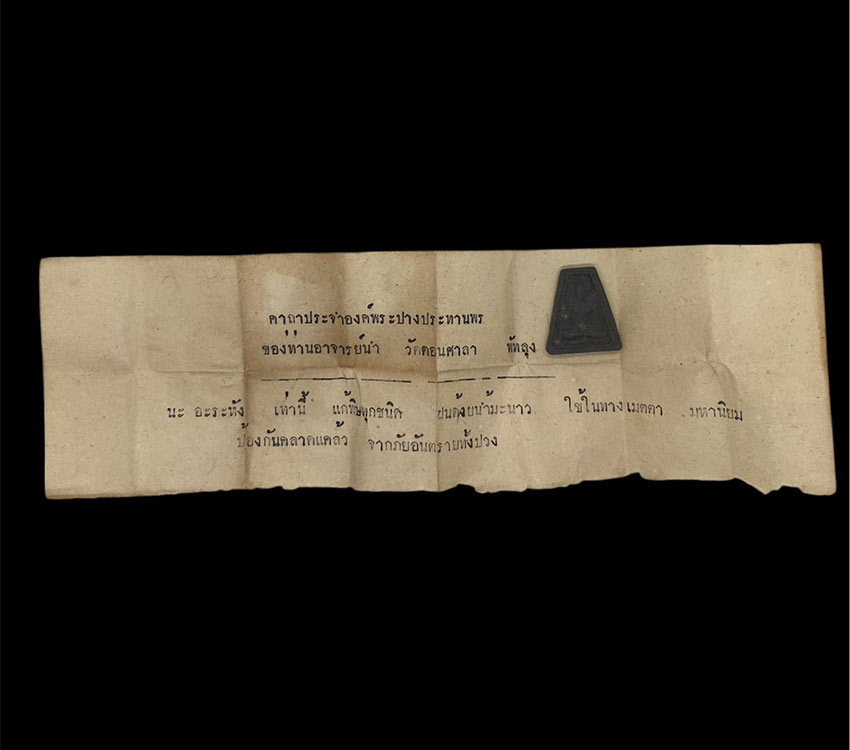 คาถาประจำองค์พระปางประทานพร
ของท่านอาจารย์นำ วัดดอนศาลา พัทลุง
นะ อะระหัง เท่านี้ แก้พิษทุกชนิด ฝนด้วยน้ำมะนาว ใช้ในทางเมตตา มหานิยม
ป้องกันคลาดแคล้ว จากภัยอันตรายทั้งปวง